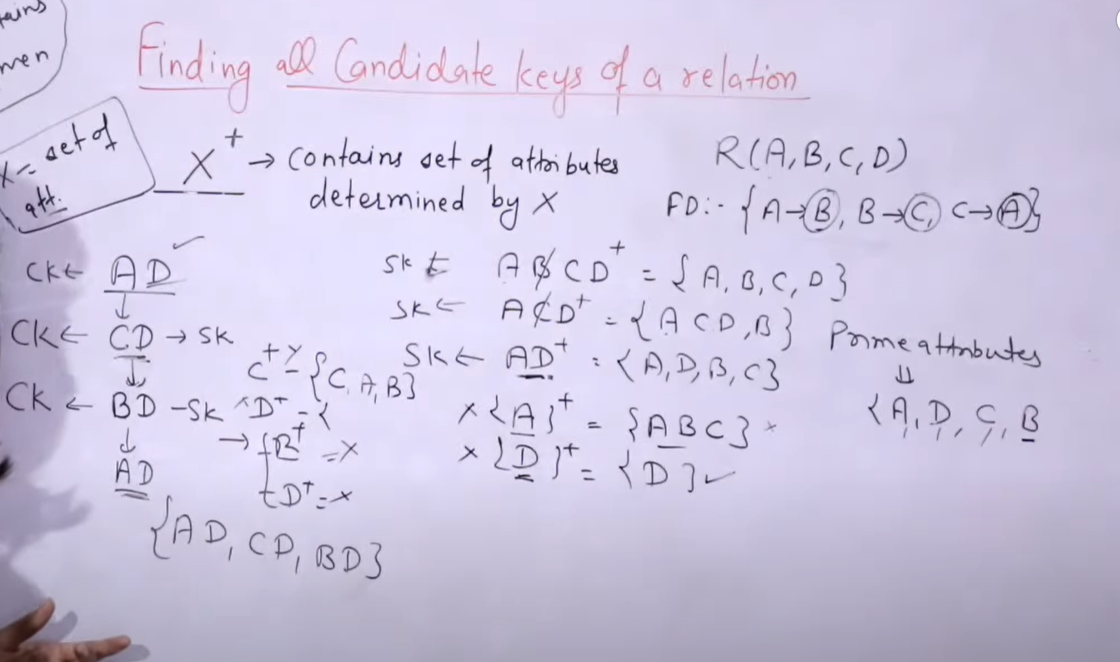 tains
men
Finding all Candidate keys of a relation
X = set of
att.
X⁺ → Contains set of attributes
determined by X
R(A, B, C, D)
FD:- {A→B, B→C, C→A}
CK← AD ✓
CK← CD → SK
CK ← BD - SK
AD
{AD, CD, BD}
C⁺ = {C, A, B}
×D⁺ = {
→ {B⁺ = ×
{D⁺ = ×
SK ← ABCD⁺ = {A, B, C, D}
SK ← ACD⁺ = {ACD, B}
SK ← AD⁺ = {A, D, B, C}
× {A}⁺ = {ABC} ×
× {D}⁺ = {D} ✓
Prime attributes
⇓
{A, D, C, B